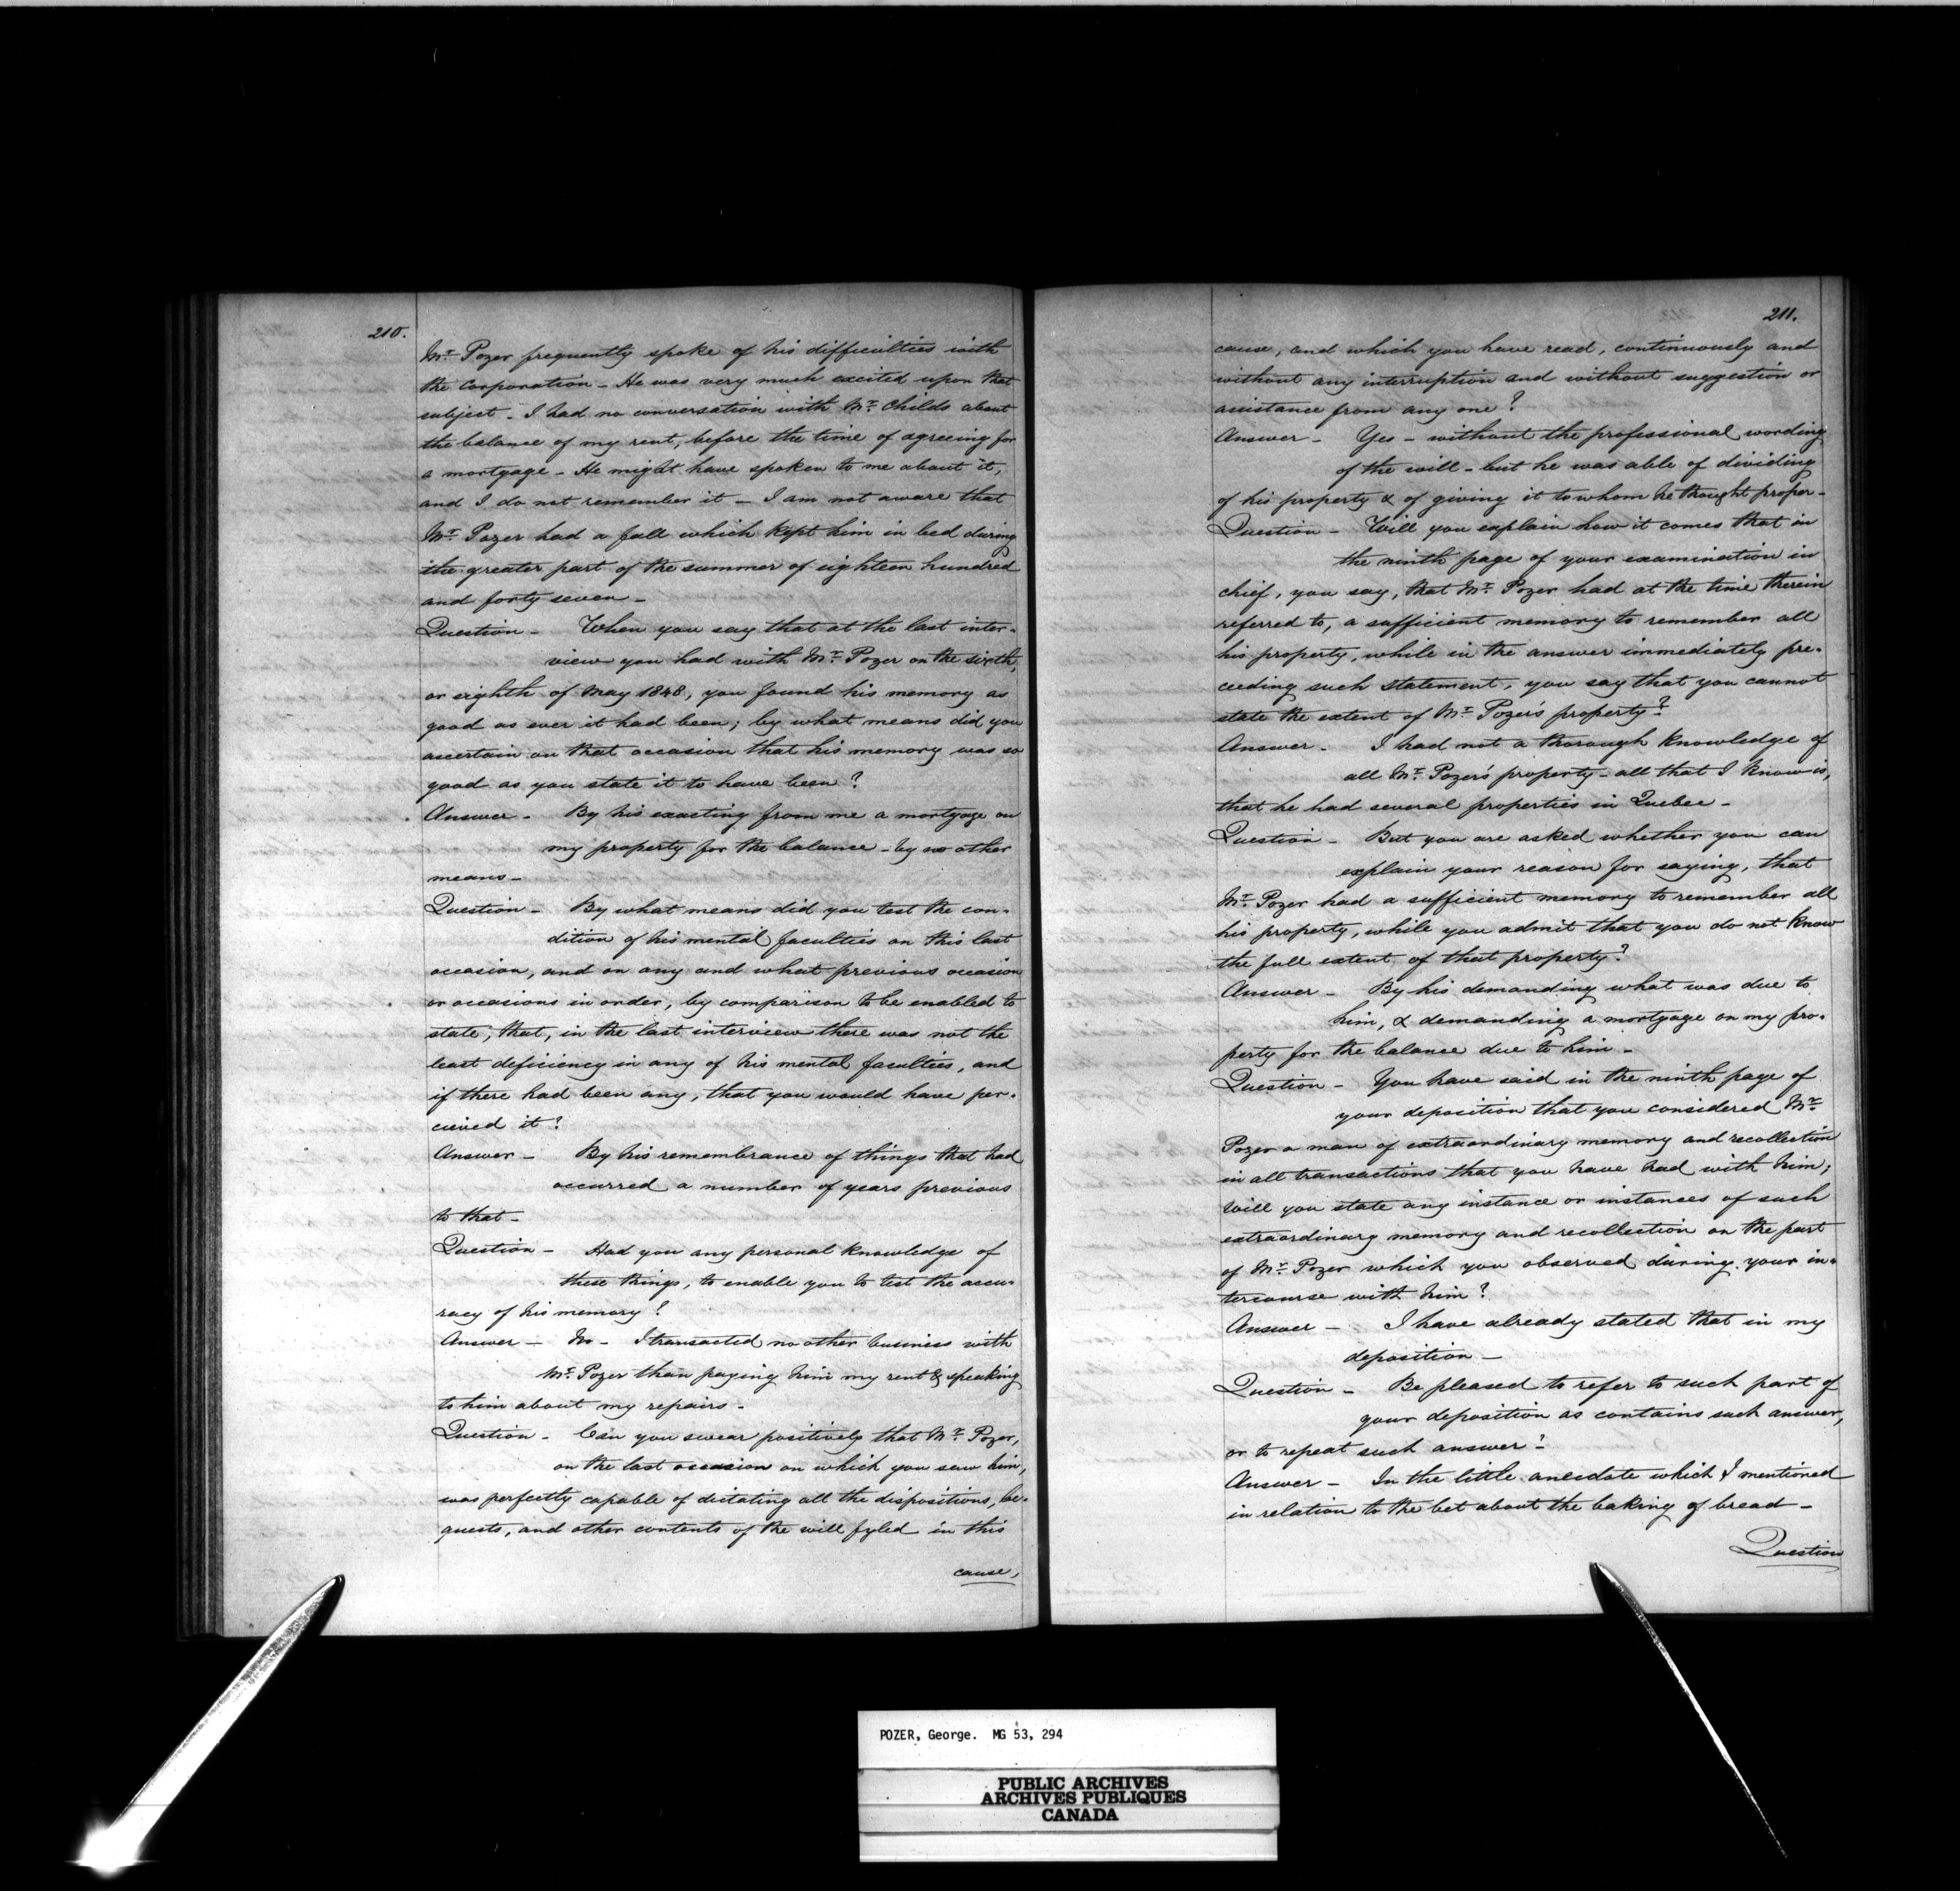 210.
Mr. Pozer frequently spoke of his difficulties with
the corporation - He was very much excited upon that
subject - I had no conversation with Mr. Childs about
the balance of my rent, before the time of agreeing for
a mortgage - He might have spoken to me about it,
and I do not remember it - I am not aware that
Mr. Pozer had a fall which kept him in bed during
the greater part of the summer of eighteen hundred
and forty seven -
Question - When you say that at the last inter-
view you had with Mr. Pozer on the sixth,
or eighth of May 1848, you found his memory as
good as ever it had been; by what means did you
ascertain on that occasion that his memory was so
good as you state it to have been?
Answer - By his exacting from me a mortgage on
my property for the balance - by no other
means -
Question - By what means did you test the con-
dition of his mental faculties on this last
occasion, and on any and what previous occasion
or occasions in order, by comparison to be enabled to
state, that, in the last interview there was not the
least deficiency in any of his mental faculties, and
if there had been any, that you would have per-
cieved it?
Answer - By his remembrance of things that had
occurred a number of years previous
to that -
Question - Had you any personal knowledge of
these things, to enable you to test the accu-
racy of his memory?
Answer - No - I transacted no other business with
Mr. Pozer than paying him my rent & speaking
to him about my repairs -
Question - Can you swear positively that Mr. Pozer,
on the last occasion on which you saw him,
was perfectly capable of dictating all the dispositions, be-
quests, and other contents of the will fyled in this
cause,
211.
cause, and which you have read, continuously and
without any interruption and without suggestion or
assistance from any one?
Answer - Yes - without the professional wording
of the will - but he was able of dividing
of his property & of giving it to whom he thought proper -
Question - Will you explain how it comes that in
the ninth page of your examination in
chief, you say, that Mr. Pozer had at the time therein
referred to, a sufficient memory to remember all
his property, while in the answer immediately pre-
ceeding such statement, you say that you cannot
state the extent of Mr. Pozer's property?
Answer - I had not a thorough knowledge of
all Mr. Pozer's property - all that I know is,
that he had several properties in Quebec -
Question - But you are asked whether you can
explain your reason for saying, that
Mr. Pozer had a sufficient memory to remember all
his property, while you admit that you do not know
the full extent of that property?
Answer - By his demanding what was due to
him, & demanding a mortgage on my pro-
perty for the balance due to him -
Question - You have said in the ninth page of
your deposition that you considered Mr.
Pozer a man of extraordinary memory and recollection
in all transactions that you have had with him;
Will you state any instance or instances of such
extraordinary memory and recollection on the part
of Mr. Pozer which you observed during your in-
tercourse with him?
Answer - I have already stated that in my
deposition -
Question - Be pleased to refer to such part of
your deposition as contains such answer,
or to repeat such answer?
Answer - In the little anecdate which I mentioned
in relation to the bet about the baking of bread -
Question
POZER, George. MG 53, 294
PUBLIC ARCHIVES
ARCHIVES PUBLIQUES
CANADA